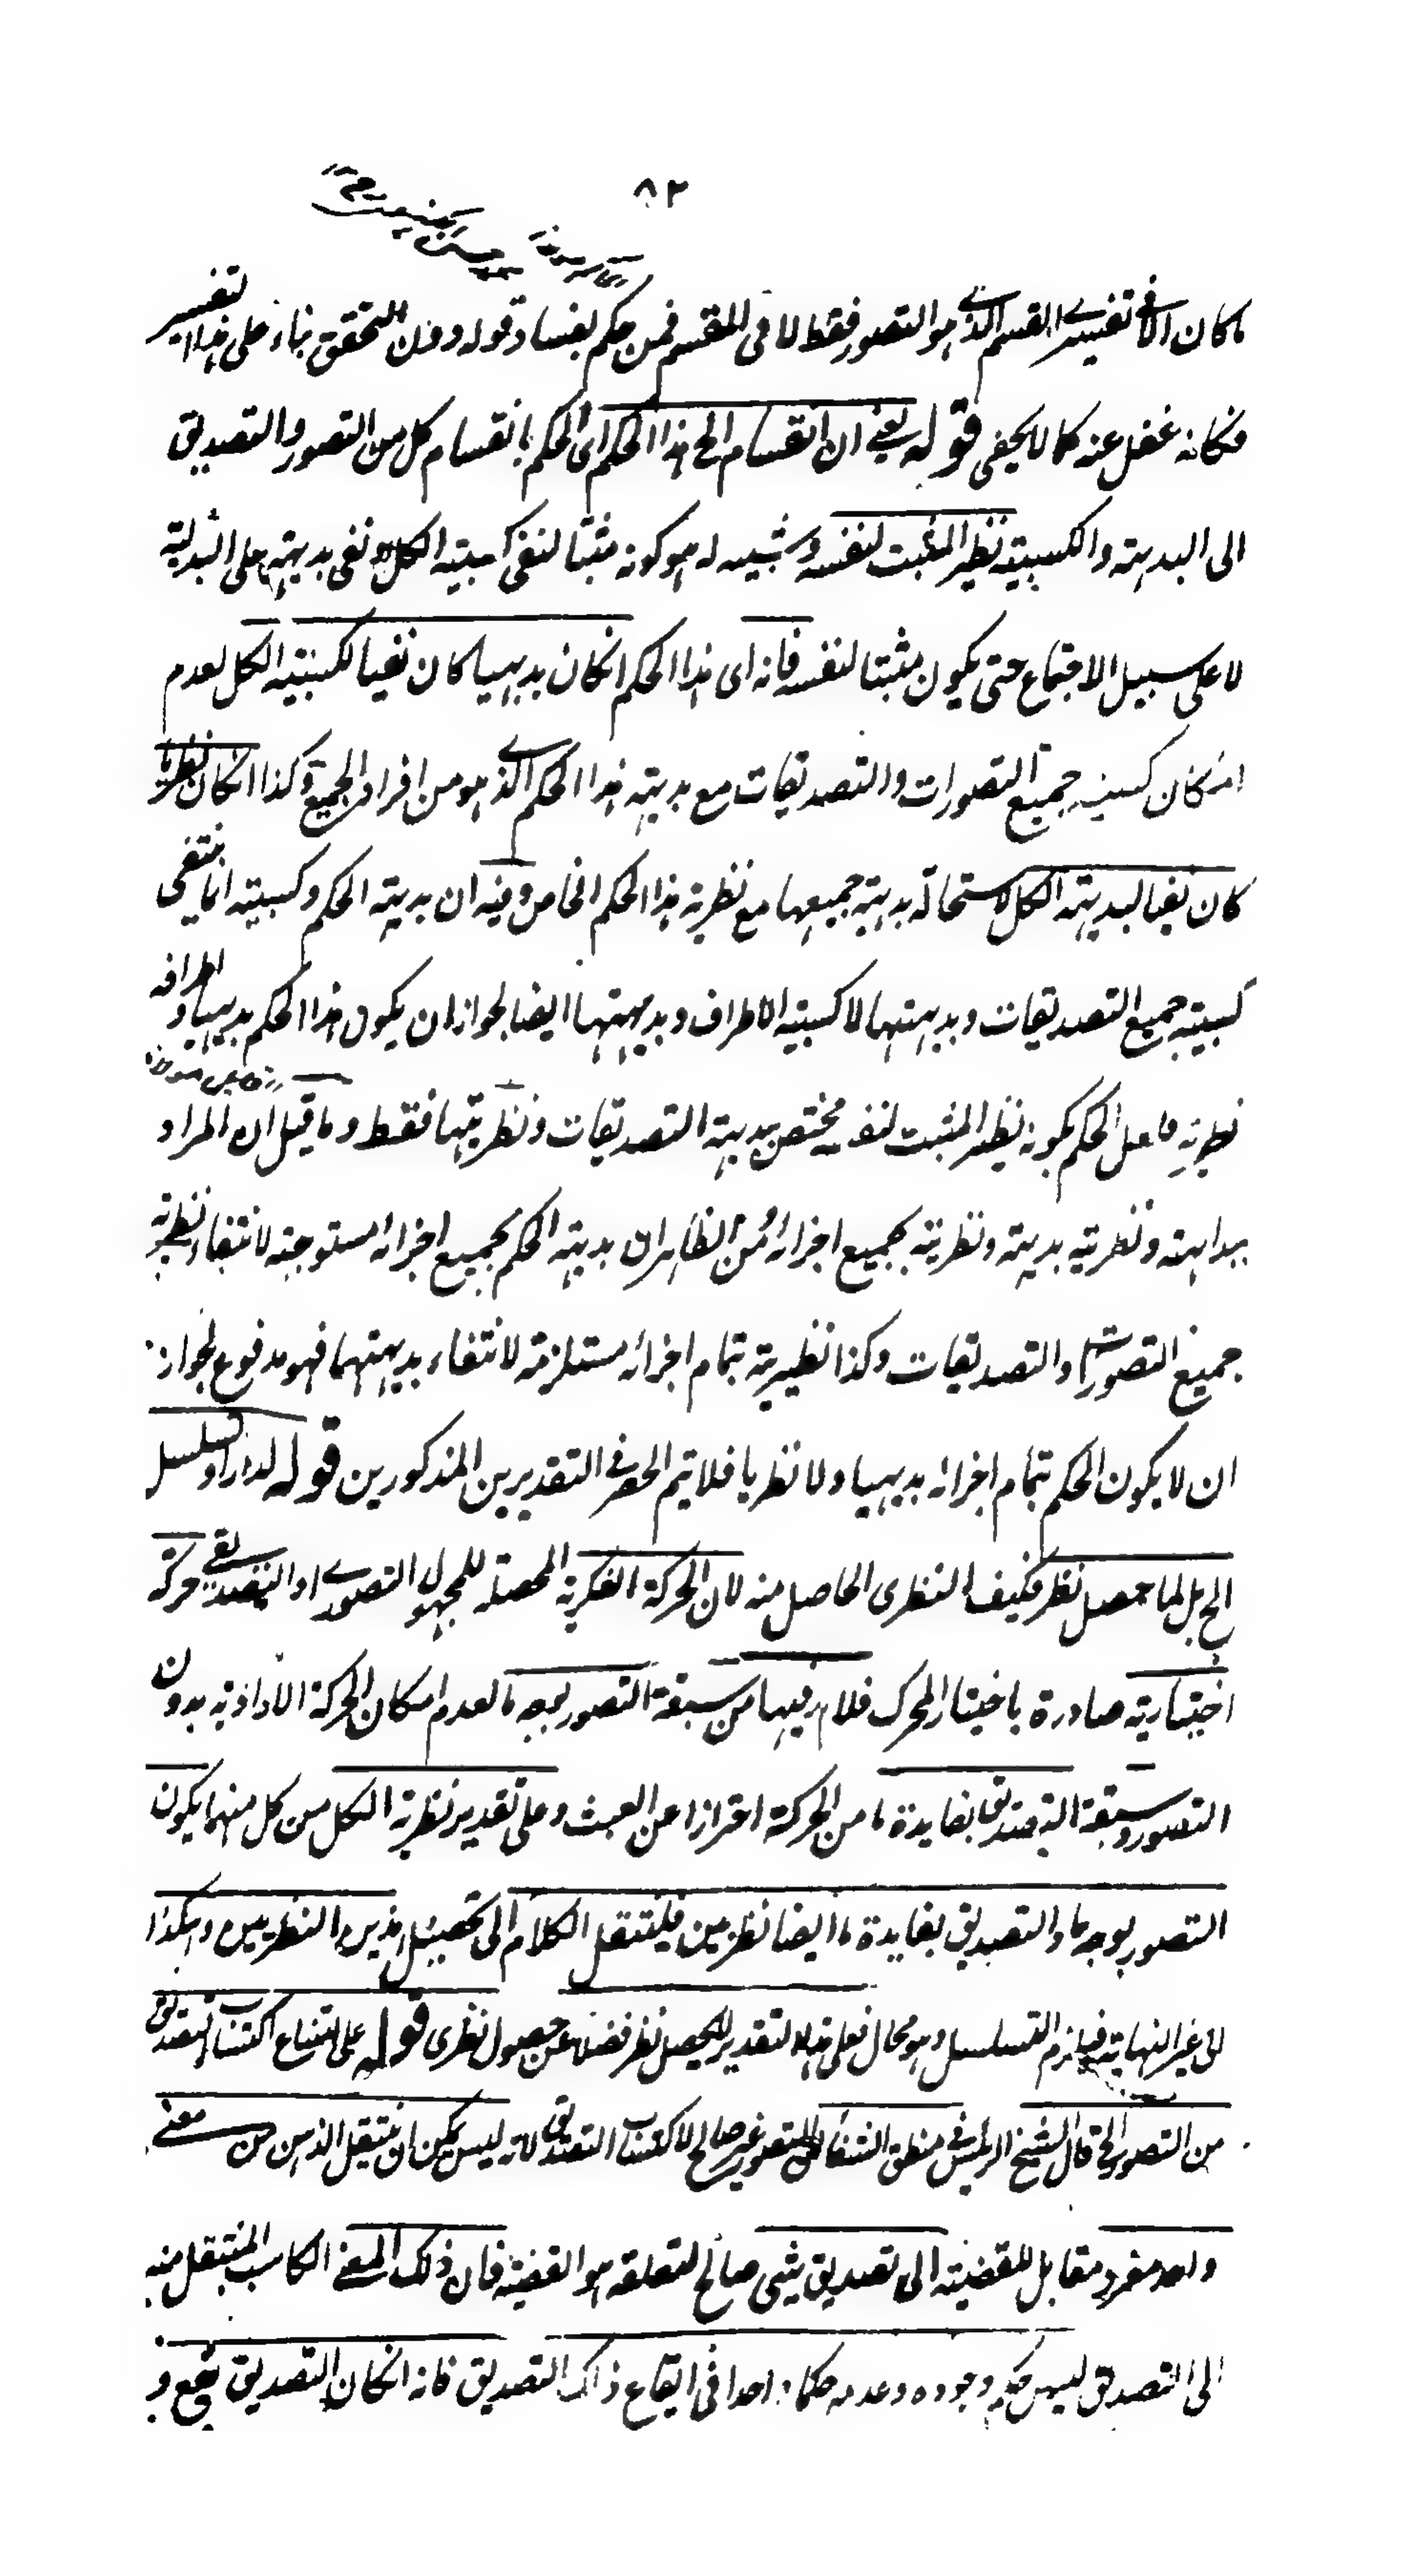 ٨٢
ما كان الا فى تفسير القسم الذى هو التصور فقط لا فى المقسم فمن حكم بفساد قوله وفان التحقق بناء على هذا التفسير
فكانه غفل عنه كما لا يخفى قوله يعنى ان انقسام الخ هذا الحكم اى الحكم بانقسام كل من التصور والتصديق
الى البديهية والكسبية نظير المثبت لنفسه وشبيه له هو كونه مثبتا لنفى كسبية الكل او نفى بديهية على البدلية
لا على سبيل الاجتماع حتى يكون مثبتا لنفسه فانه اى هذا الحكم انكان بديهيا كان نفيا لكسبية الكل لعدم
امكان كسبية جميع التصورات والتصديقات مع بديهية هذا الحكم الذى هو من افراد الجميع وكذا انكان نظريا
كان نفيا لبديهية الكل لاستحالة بديهية جميعها مع نظرية هذا الحكم الخاص وفيه ان بديهية الحكم وكسبيته انما ينتفى
كسبية جميع التصديقات وبديهيتها لا كسبية الاطراف وبديهيتها ايضا لجواز ان يكون هذا الحكم بديهيا واطرافه
نظرية فاعل الحكم بكونه نظير المثبت لنفسه مختص ببديهية التصديقات ونظريتها فقط وما قيل ان المراد
ببداهته ونظريته بديهية ونظرية بجميع اجزائه ومن الظاهر ان بديهية الحكم بجميع اجزائه مستوجبة لانتفاء نظرية
جميع التصورات والتصديقات وكذا نظرية بتمام اجزائه مستلزمة لانتفاء بديهيتهما فهو مدفوع لجواز
ان لا يكون الحكم بتمام اجزائه بديهيا ولا نظريا فلا يتم الحصر فى التقديرين المذكورين قوله لدار او تسلسل
الخ بل لما حصل نظر فكيف النظرى الحاصل منه لان الحركة الفكرية المحصلة للمجهول التصورى او التصديقى حركة
اختيارية صادرة باختيار المحرك فلا بد فيها من سبقة التصور بوجه ما لعدم امكان الحركة الارادية بدون
التصور وسبقة التصديق بفايدة ما من الحركة احترازا عن العبث وعلى تقدير نظرية الكل من كل منهما يكون
التصور بوجه ما والتصديق بفايدة ما ايضا نظريين فينتقل الكلام الى تحصيل هذين النظريين وهكذا
الى غير النهاية فيلزم التسلسل وهو محال فعلى هذا التقدير لا يحصل نظر فضلا عن حصول نظرى قوله على امتناع اكتساب التصديق
من التصور الخ قال الشيخ الرئيس فى منطق الشفاء ان التصور غير صالح لاكتساب التصديق لانه ليس يمكن ان ينتقل الذهن من معنى
واحد مفرد مقابل للقضية الى تصديق بشى صالح لتعلقه هو القضية فان ذلك المعنى الكاسب المنتقل منه
الى التصديق ليس حكم وجوده وعدمه حكما واحدا فى ايقاع ذلك التصديق فانه انكان التصديق يقع و